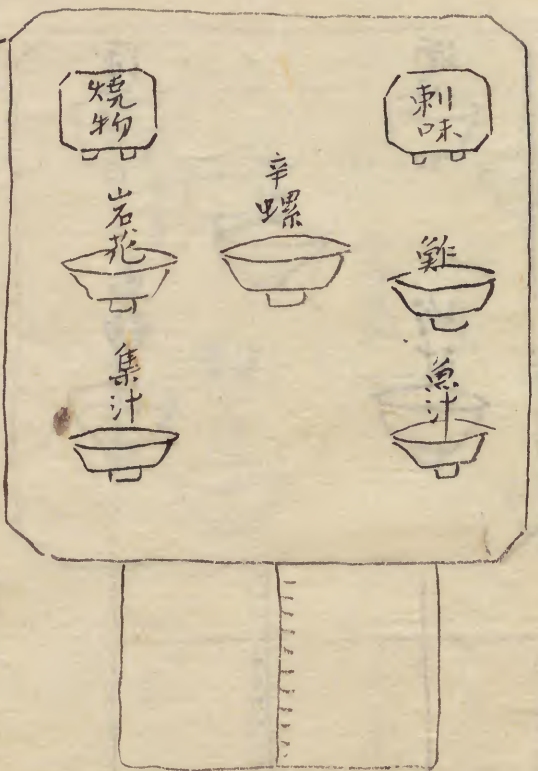 刺味
鮓
魚汁
辛螺
焼物
岩花
集汁